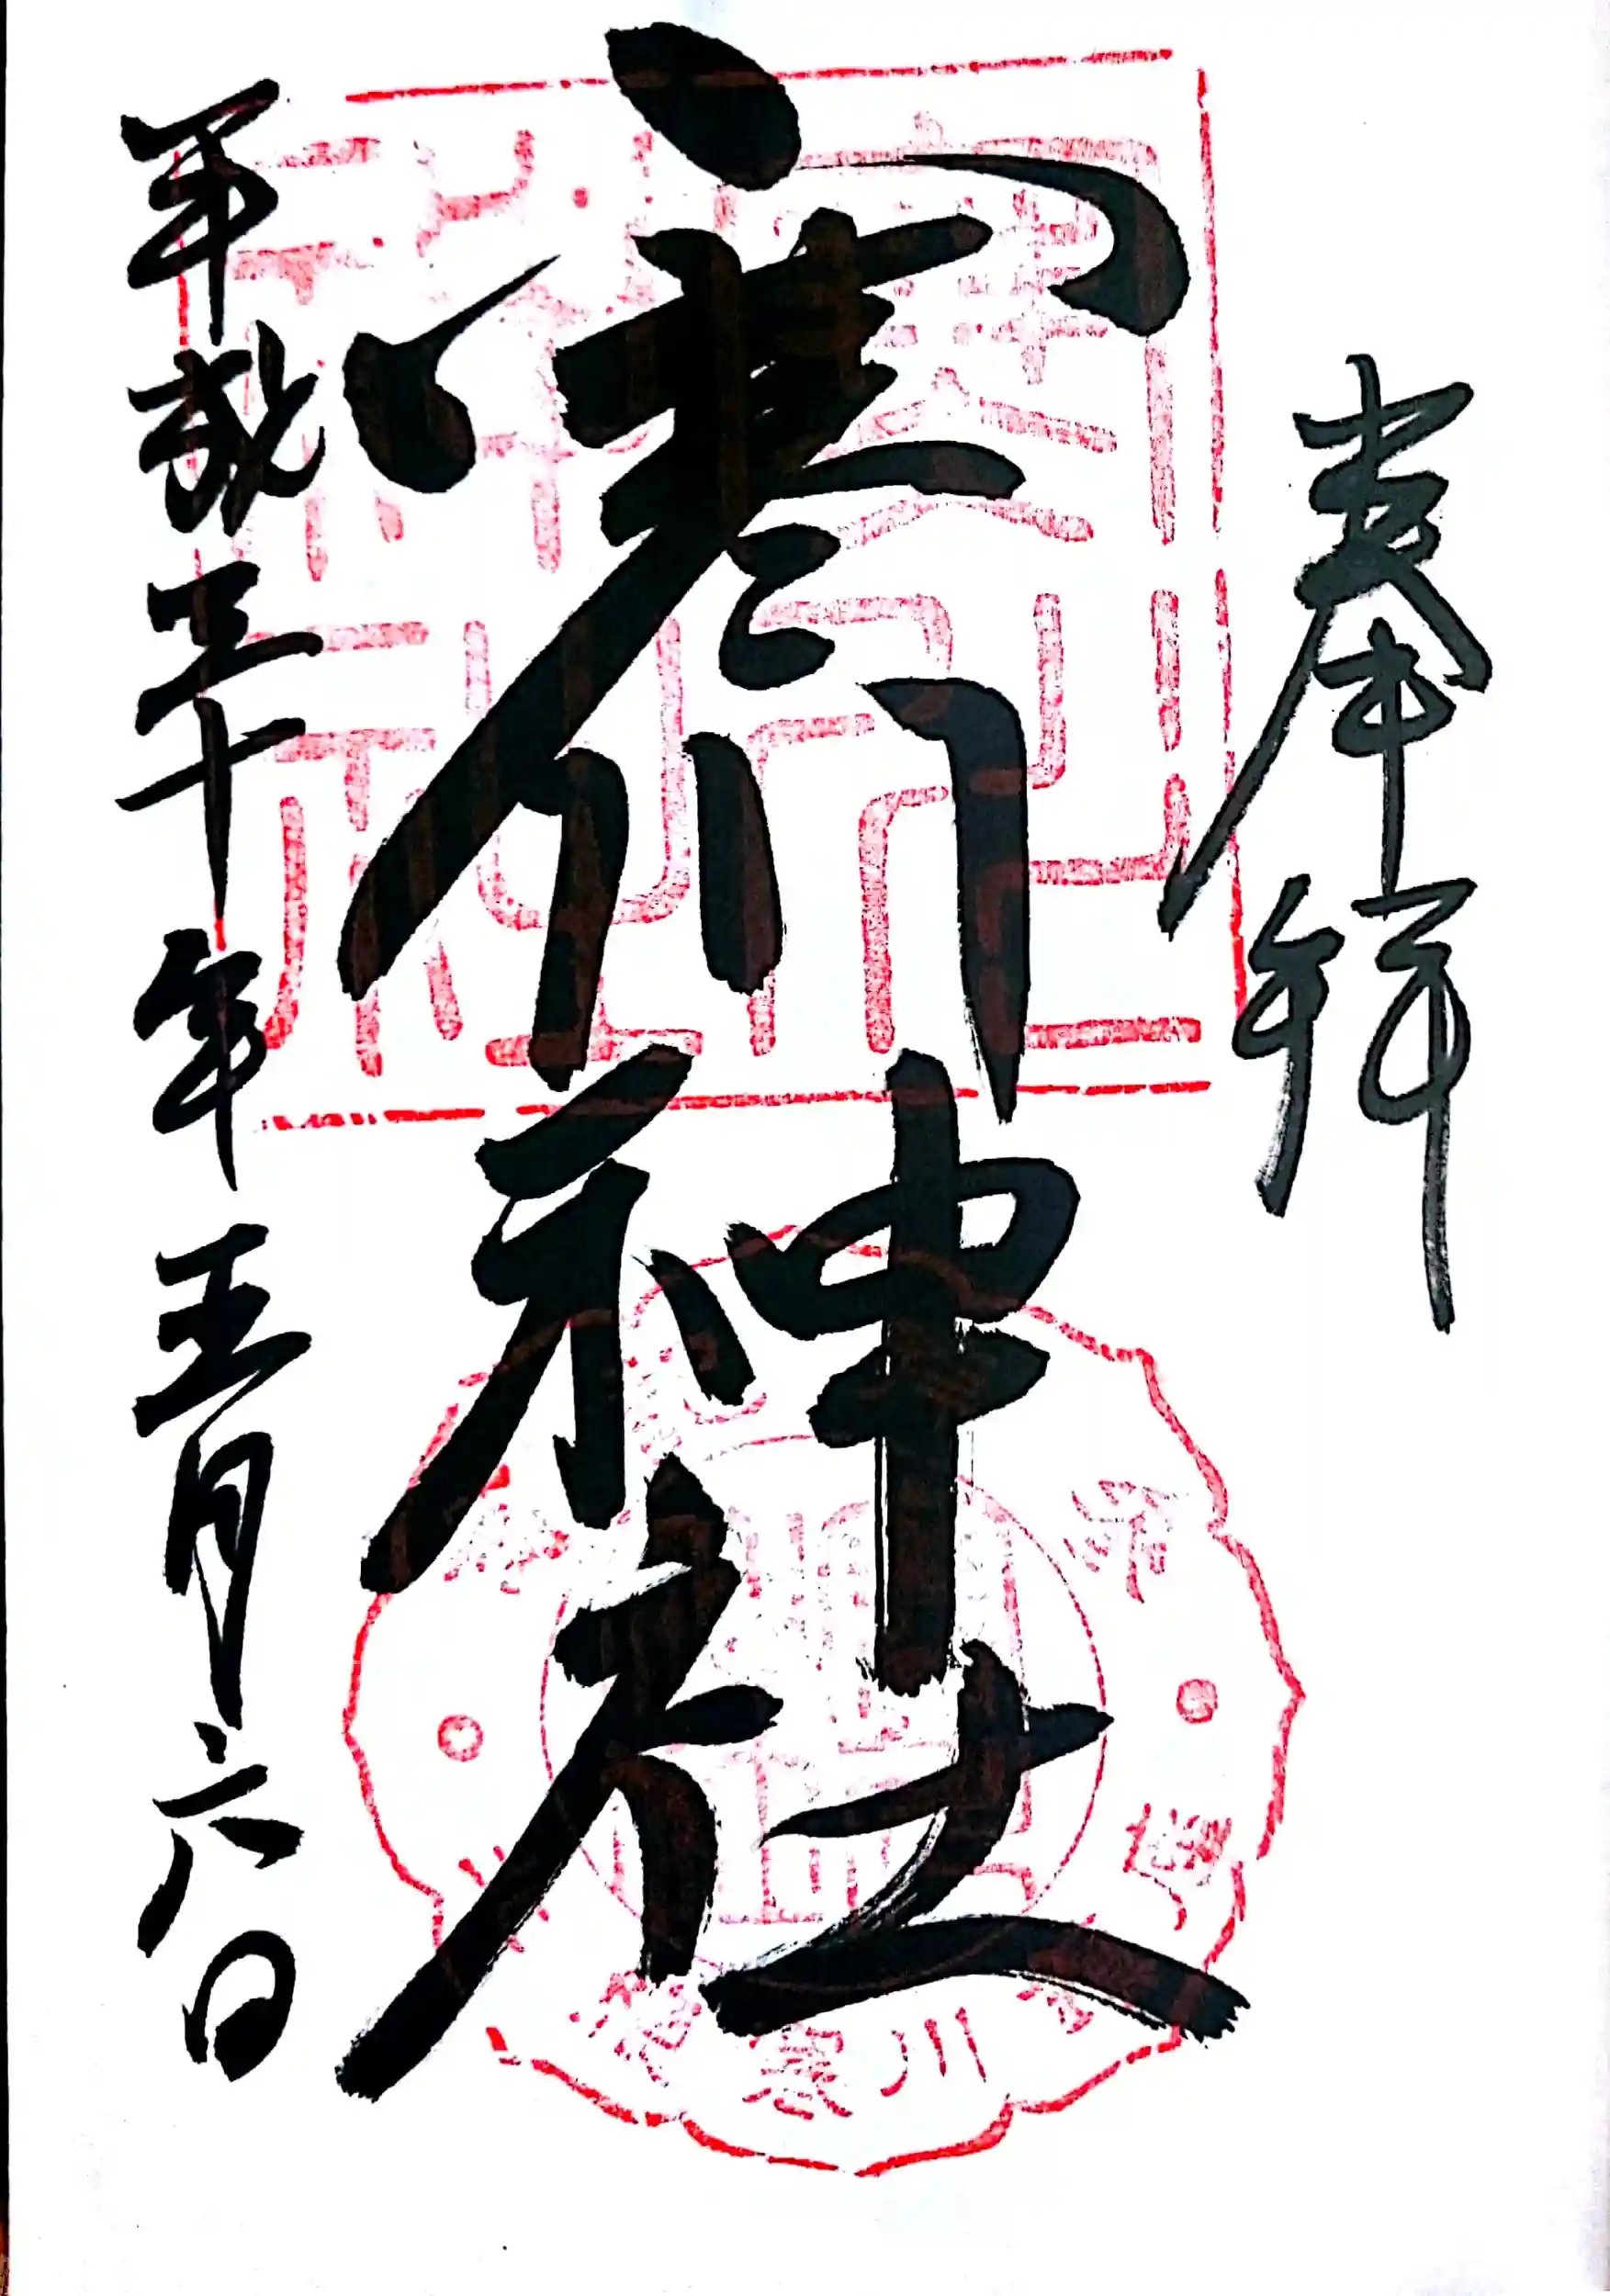 奉拝
寒川神社
平成三十年五月六日
寒川